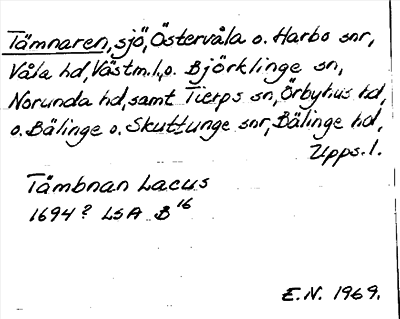 Tämnaren, sjö, Östervåla o. Harbo snr,
Våla hd, Västm.l., o. Björklinge sn,
Norunda hd, samt Tierps sn, Örbyhus hd,
o. Bälinge o. Skuttunge snr, Bälinge hd,
Upps. l.
Tämbnan Lacus
1694? LSA B 16
E.N. 1969.